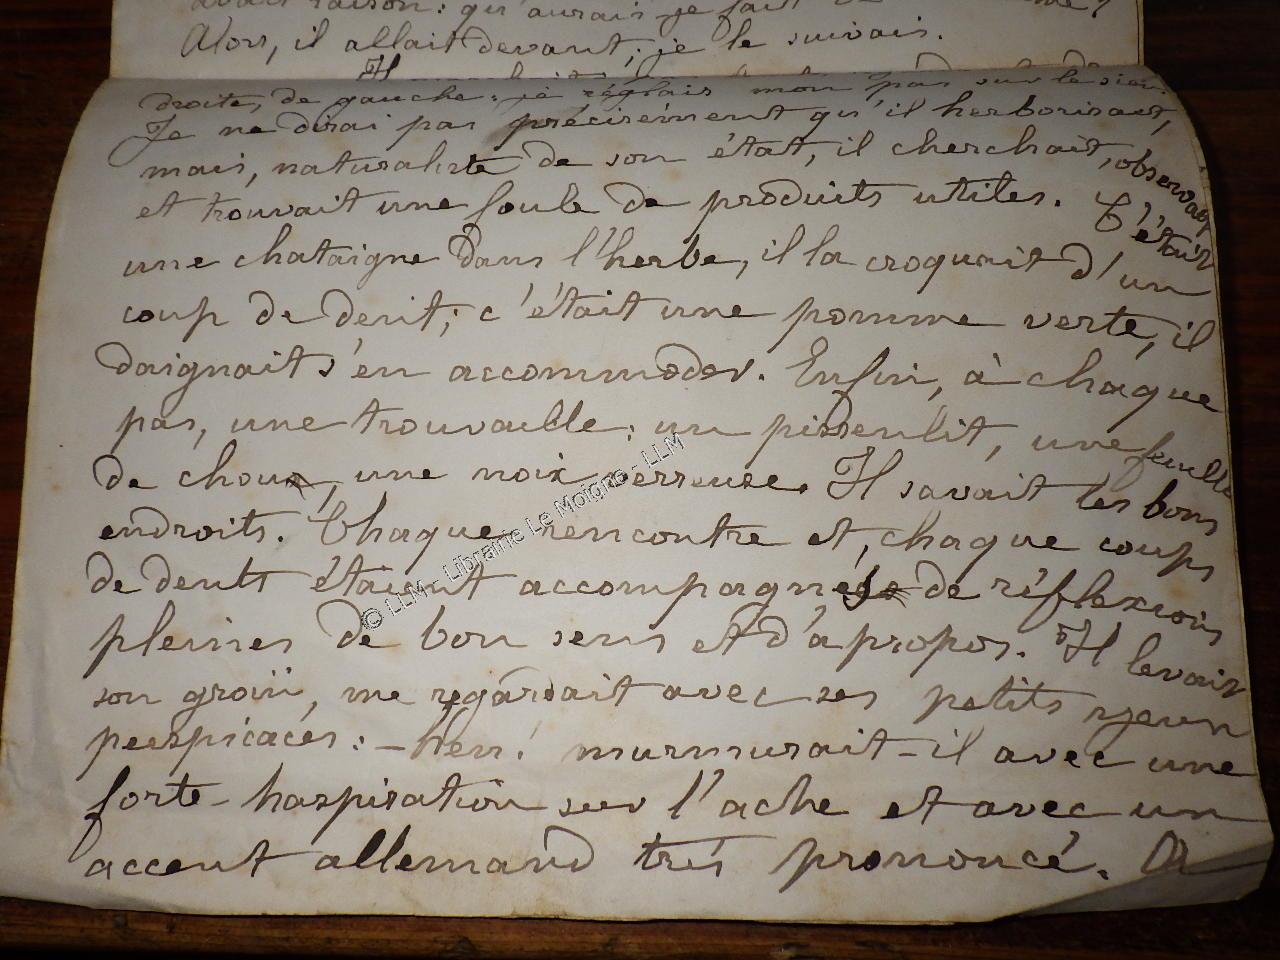 avait raison: qu'aurais-je fait
Alors, il allait devant; je le suivais.
Il
droite, de gauche: je réglais mon pas sur le sien.
Je ne dirai pas précisément qu'il herborisait,
mais, naturaliste de son état, il cherchait, observait
et trouvait une foule de produits utiles. C'était
une chataigne dans l'herbe, il la croquait d'un
coup de dent; c'était une pomme verte, il
daignait s'en accommoder. Enfin, à chaque
pas, une trouvaille: un pissenlit, une feuille
de chou, une noix verreuse. Il savait les bons
endroits. Chaque rencontre et, chaque coups
de dents étaient accompagnés de réflexions
pleines de bon sens et d'apropos. Il levait
son groin, me regardait avec ses petits yeux
perspicaces: - hen! murmurait-il avec une
forte haspiration sur l'ache et avec un
accent allemand très prononcé. A
© LLM - Librairie Le Moigne - LLM